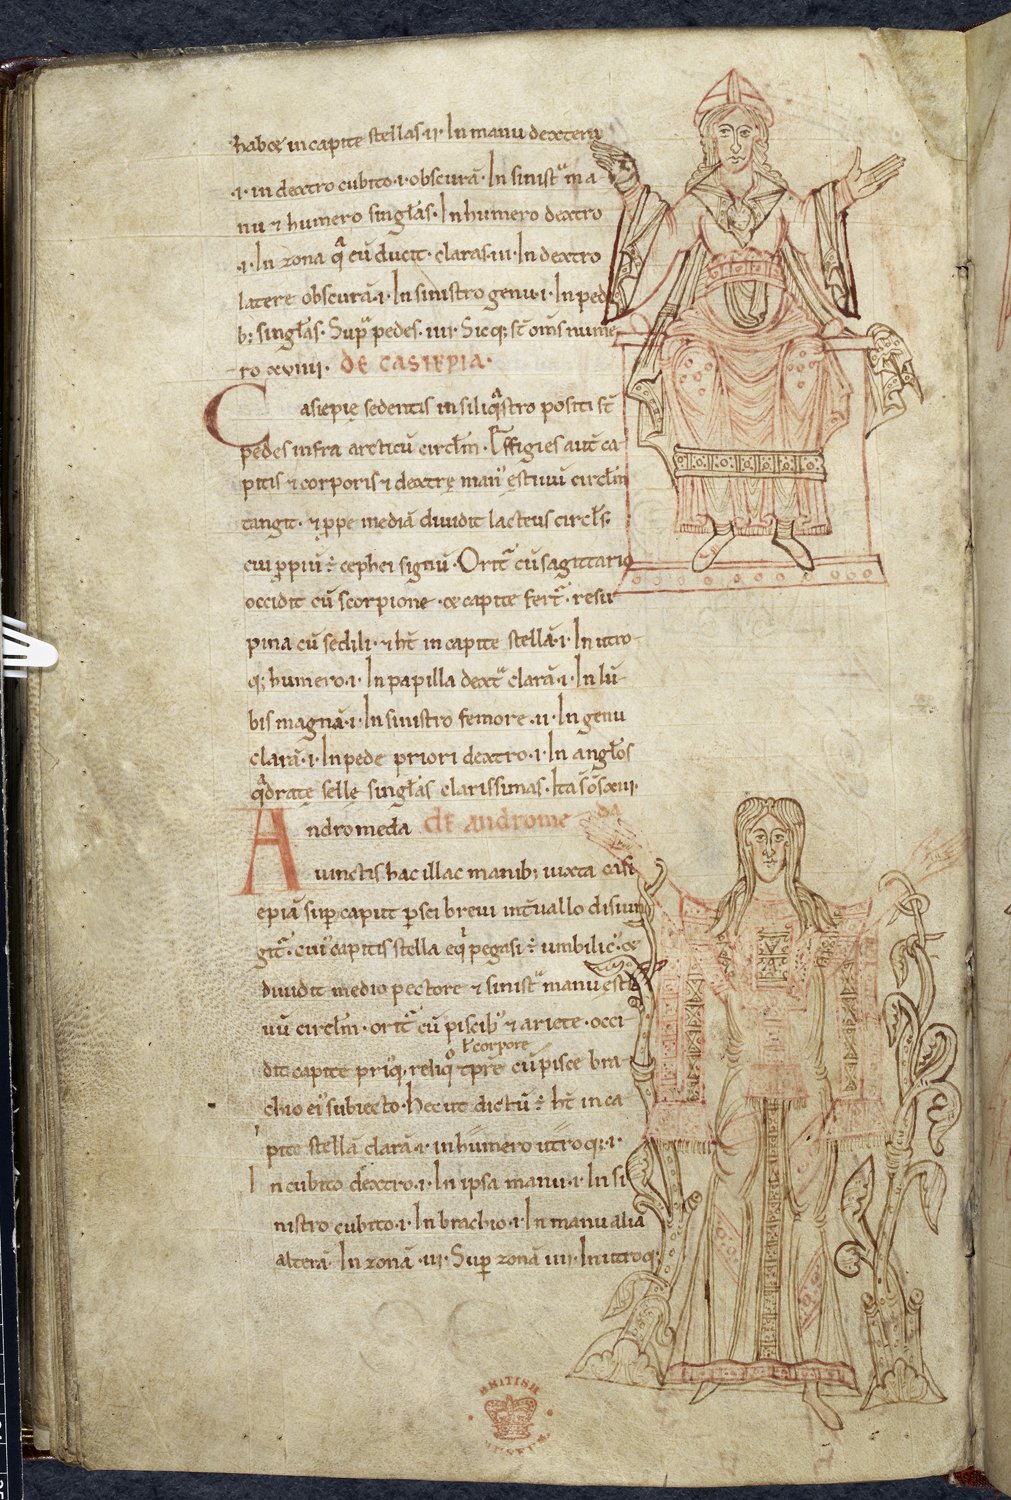 habet in capite stellas·ii· In manu dextera
·i· in dextro cubito·i·obscurā· In sinistᵃ ma
nu ⁊ humero singłas· In humero dextro
·i· In zona qᵃ cū ducit· claras·iii· In dextro
latere obscurā·i· In sinistro genu·i· In pedi
b; singłas· Supᵃ pedes·iiii· Sicq; st̄ om̄s nume
ro xviiii· DE CASIEPIA·
Casiepię sedentis in siliqᵃstro positi st̄
pedes infra arcticū circłm· Effigies aut̄ ca
pitis ⁊ corporis ⁊ dextrę man᾽ ęstiuū circłm
tangit· ⁊ ꝓpe mediā diuidit lacteus circłs·
cui ꝓpiū ē cephei signū· Orit᷑ cū sagittario
occidit cū scorpione· ⁊ capite fert᷑· resu
pina cū sedili· ⁊ ht̄ in capite stellā·i· In utro
q; humero·i· In papilla dextᵃ clarā·i· In lū
bis magnā·i· In sinistro femore·ii· In genu
clarā·i· In pede priori dextro·i· In angłos
qᵃdratę sellę singłas clarissimas· Ita s̄ōs xiii·
Andromeda DE ANDROMEDA
uinctis hac illac manib; iuxta casi
epiā suꝑ caput ꝑsei breui int̄uallo disiun
git᷑· cui᾽ capitis stella eqⁱ pegasi ē umbilic᾽· ⁊
diuidit medio pectore ⁊ sinistᵃ manu esti
uū circłm· orit᷑ cū piscib᾽ ⁊ ariete· occi
ł corpore
dit capite pri᾽q, reliqᵒ tp̄re cū pisce bra
chio ei᾽ subiecto· Hec ut dictū ē ht̄ in ca
pite stellā clarā·i· in humero utroq;·i·
In cubito dextro·i· In ipsa manu·i· In si
nistro cubito·i· In brachio·i· In manu alia
alterā· In zonā·iii· Suꝑ zonā iiii· In utroq;
BRITISH
MUSEUM